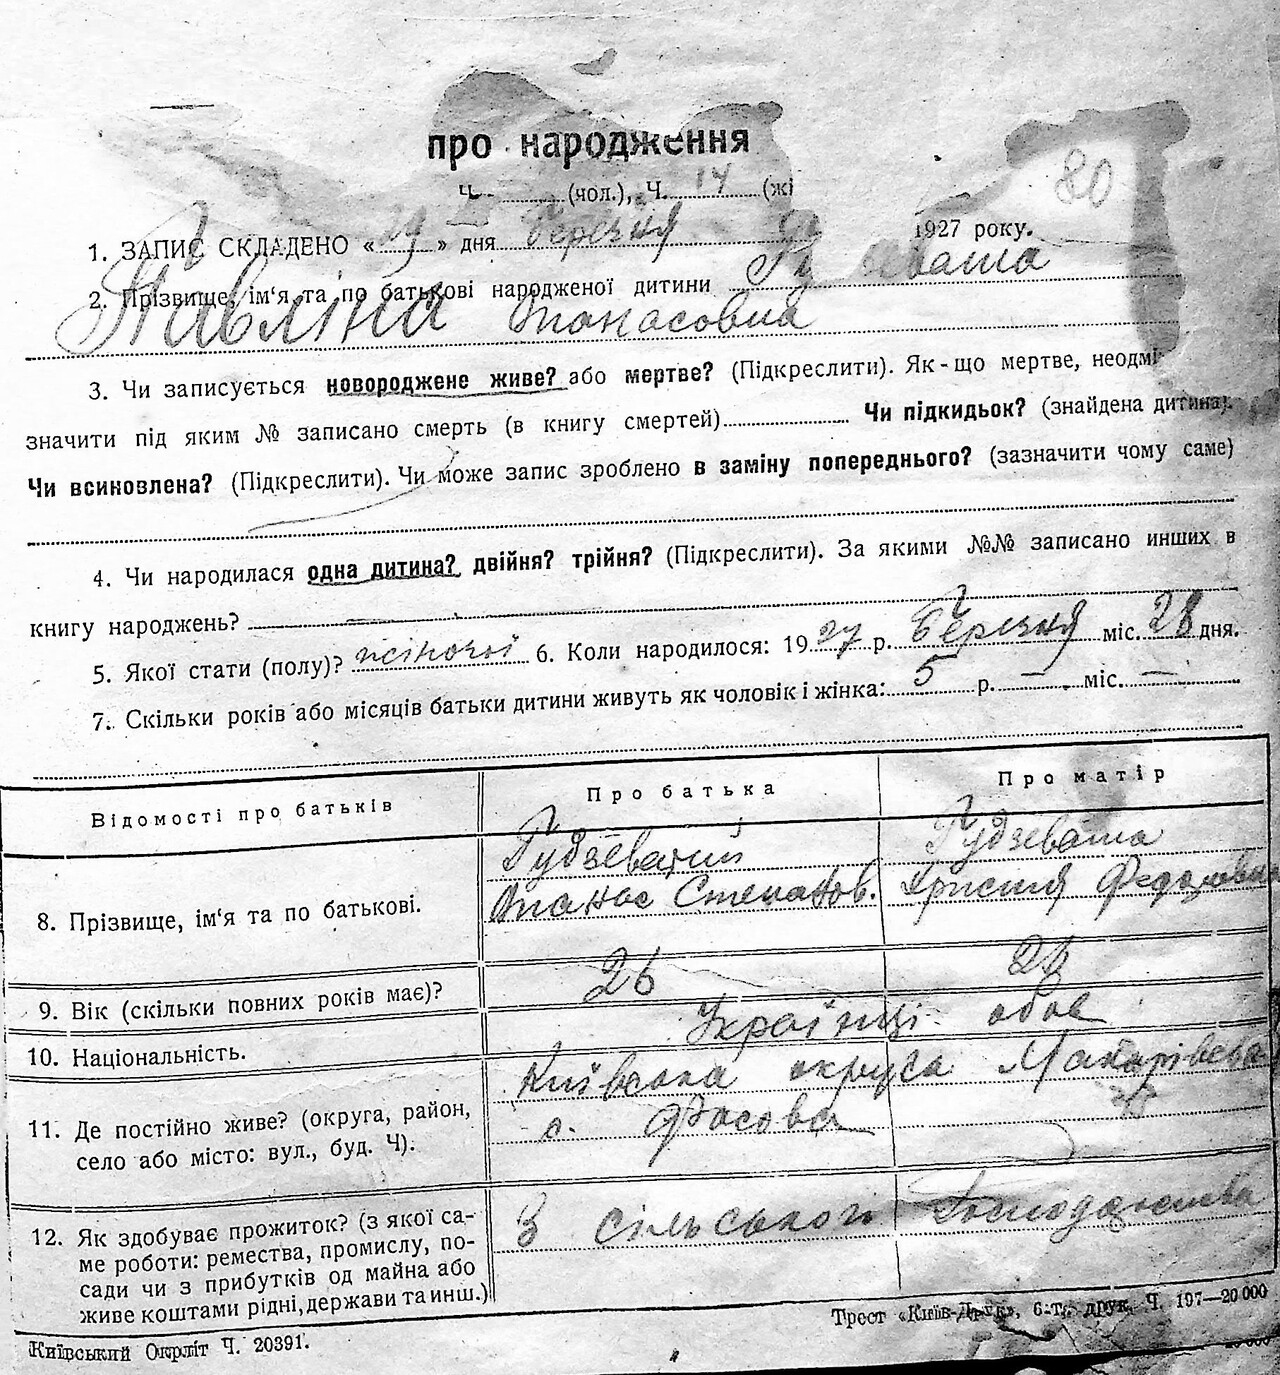 про народження
Ч. (чол.), Ч. 14 (жі
80
1. ЗАПИС СКЛАДЕНО «29» дня Березня 1927 року.
2. Прізвище, ім‘я та по батькові народженої дитини
Павліна Танасовна
3. Чи записується новороджене живе? або мертве? (Підкреслити). Як-що мертве, неодмі
значити під яким № записано смерть (в книгу смертей) Чи підкидьок? (знайдена дитина).
Чи всиновлена? (Підкреслити). Чи може запис зроблено в заміну попереднього? (зазначити чому саме)
4. Чи народилася одна дитина? двійня? трійня? (Підкреслити). За якими №№ записано инших в
книгу народжень? —
5. Якої стати (полу)? жіночої 6. Коли народилося: 1927 р. Березня міс. 28 дня.
7. Скільки років або місяців батьки дитини живуть як чоловік і жінка: 5 р. — міс. —
Відомості про батьків Про батька Про матір
Гудзеватий Гудзевата
8. Прізвище, ім‘я та по батькові. Танас Степанов. Христя Федоровна
9. Вік (скільки повних років має)? 26
10. Національність. Українці обоє
11. Де постійно живе? (округа, район, Київська округа Макарівськ
село або місто: вул., буд. Ч). с. Фасова
12. Як здобуває прожиток? (з якої са- З сільського господарства
ме роботи: ремества, промислу, по-
сади чи з прибутків од майна або
живе коштами рідні, держави та инш.)
Київський Окрліт Ч. 20391. Трест «Київ-Друк», 6-т. друк. Ч. 197—20000